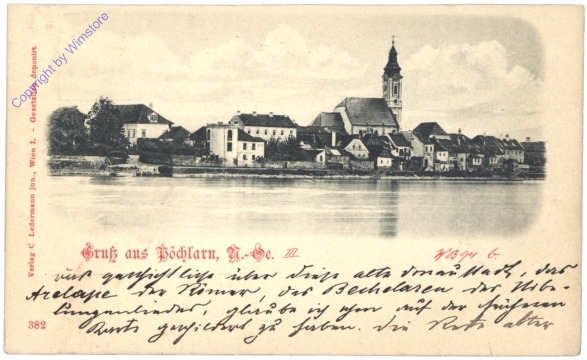 Copyright by Wimstore
Verlag C Ledermann jun., Wien I. - Gesetzlich deponirt.
Gruß aus Pöchlarn, N.-Oe. III
das geschichtliche über diese alte Donaustadt, das
Arelape der Römer, das Bechelaren des Nibe-
lungenliedes, glaube ich schon auf der früheren
Karte geschildert zu haben. Die Reste alter
382